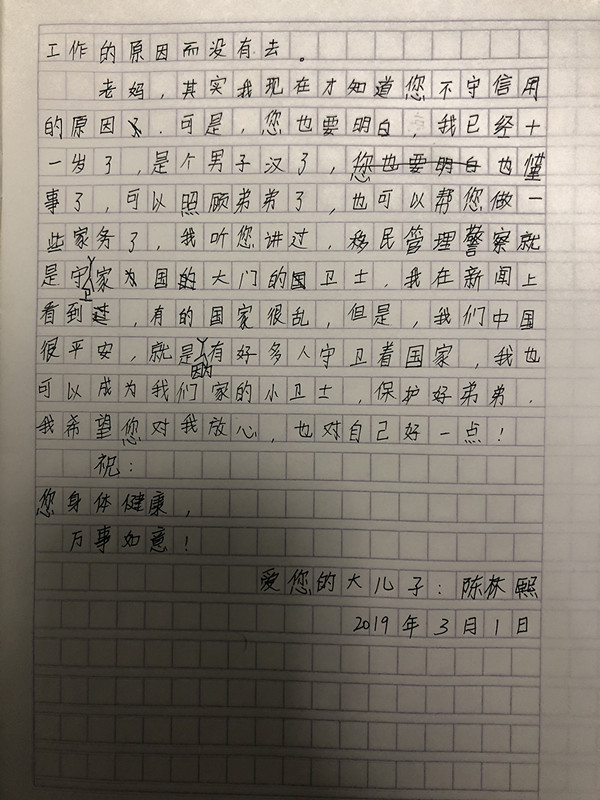 工作的原因而没有去。
老妈，其实我现在才知道您不守信用
的原因。可是，您也要明白，我已经十
一岁了，是个男子汉了，您也要明白也懂
事了，可以照顾弟弟了，也可以帮您做一
些家务了，我听您讲过，移民管理警察就
是守卫家为国的大门的国卫士，我在新闻上
看到，有的国家很乱，但是，我们中国
很平安，就是因为有好多人守卫着国家，我也
可以成为我们家的小卫士，保护好弟弟，
我希望您对我放心，也对自己好一点！
祝：
您身体健康，
万事如意！
爱您的大儿子：陈林熙
2019年3月1日